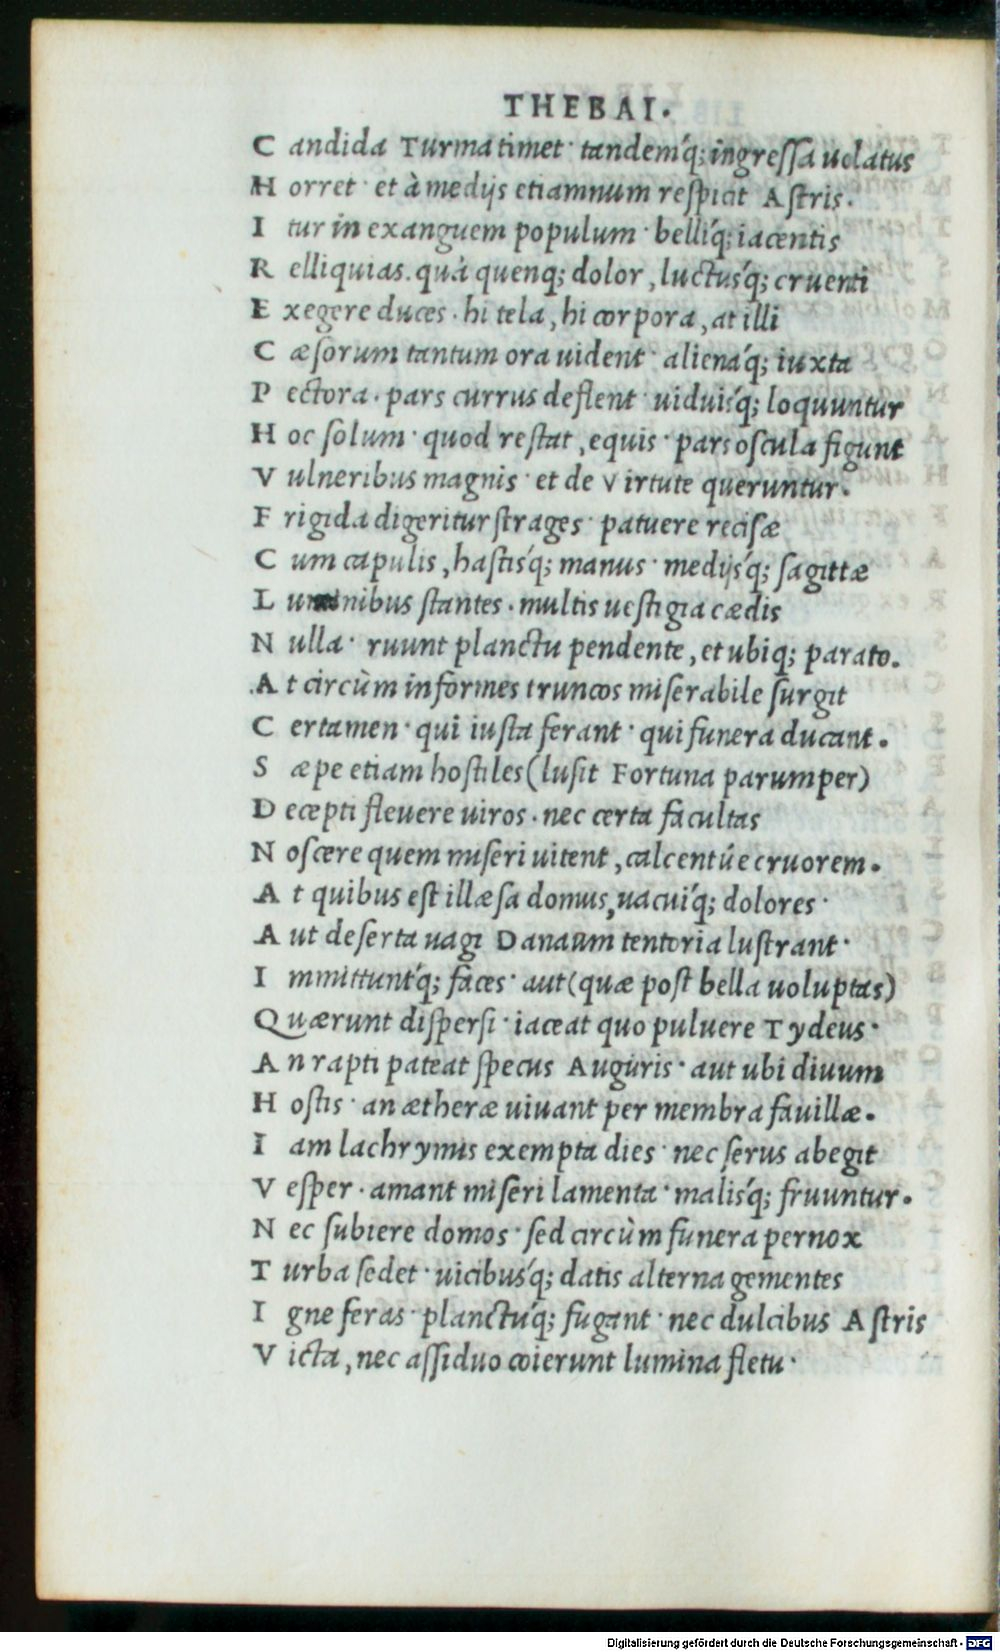 THEBAI.
C andida Turma timet· tandemq́; ingreſſa uolatus
H orret· et à medijs etiamnum reſpicit Aſtris.
I tur in exanguem populum· belliq́; iacentis
R elliquias. quà quenq; dolor, luctusq́; cruenti
E xegere duces· hi tela, hi corpora, at illi
C æſorum tantum ora uident· alienaq́; iuxta
P ectora· pars currus deflent· uiduisq́; loquuntur
H oc ſolum· quod reſtat, equis· pars oſcula figunt
V ulneribus magnis· et de Virtute queruntur.
F rigida digeritur ſtrages· patuere reciſæ
C um capulis, haſtisq́; manus· medijsq́; ſagittæ
L uminibus ſtantes· multis ueſtigia cædis
N ulla· ruunt planctu pendente, et ubiq; parato.
A t circùm informes truncos miſerabile ſurgit
C ertamen· qui iuſta ferant· qui funera ducant.
S æpe etiam hoſtiles (luſit Fortuna parumper)
D ecepti fleuere uiros· nec certa facultas
N oſcere quem miſeri uitent, calcentúe cruorem.
A t quibus eſt illæſa domus, uacuiq́; dolores·
A ut deſerta uagi Danaum tentoria luſtrant·
I mmittuntq́; faces· aut (quæ poſt bella uoluptas)
Quærunt diſperſi· iaceat quo puluere Tydeus·
A n rapti pateat ſpecus Auguris· aut ubi diuum
H oſtis· an ætheræ uiuant per membra fauillæ.
I am lachrymis exempta dies· nec ſerus abegit
V eſper· amant miſeri lamenta· malisq́; fruuntur.
N ec ſubiere domos· ſed circùm funera pernox
T urba ſedet· uicibusq́; datis alterna gementes
I gne feras· planctuq́; fugant· nec dulcibus Aſtris
V icta, nec aſſiduo coierunt lumina fletu·
Digitalisierung gefördert durch die Deutsche Forschungsgemeinschaft - DFG